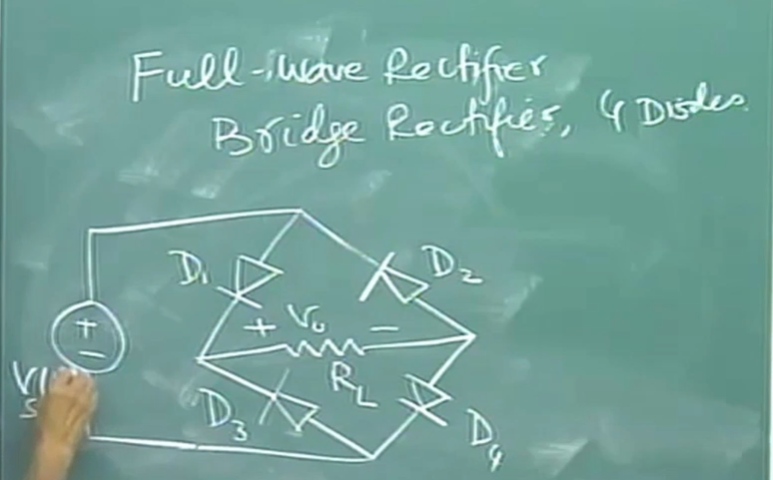 Full-Wave Rectifier
Bridge Rectifier, 4 Diodes
D1
D2
+ Vo -
+
-
RL
D3
D4